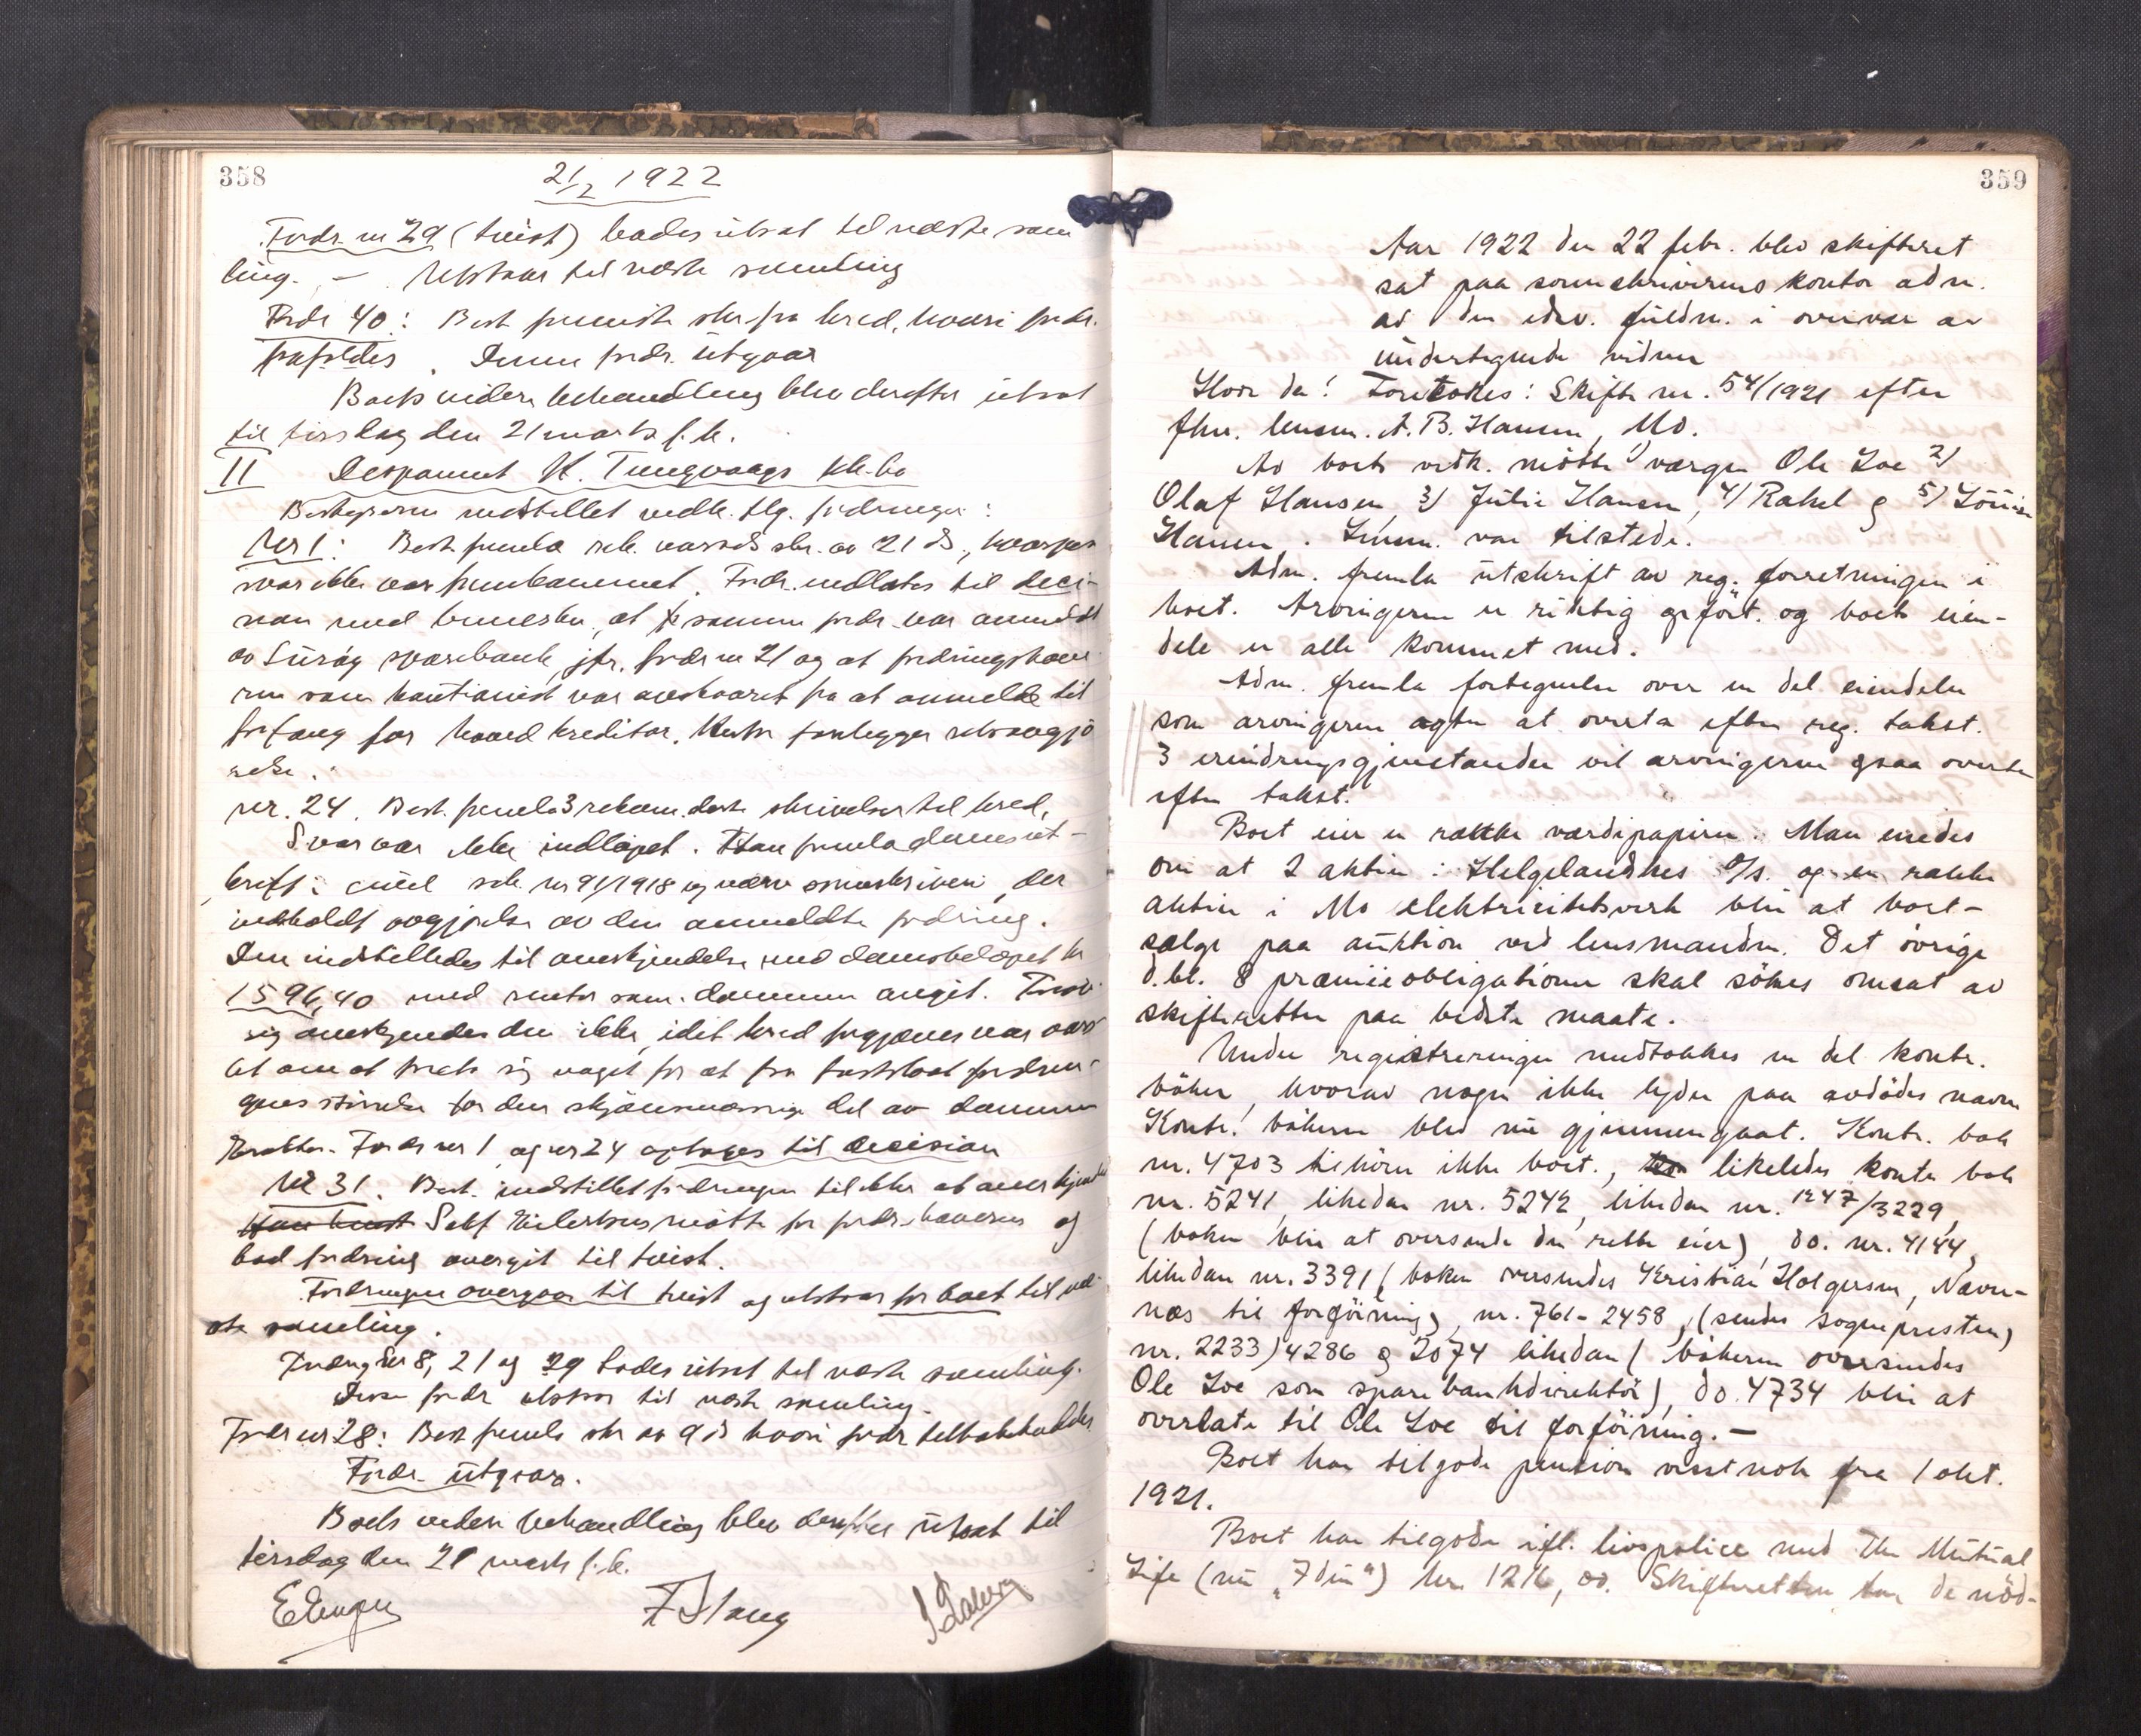 358
21/2 1922
Fordr. nr 29 (tvist) bades utsat til næste sam
ling. — Utstaar til næste samling
Fordr 40: Best. fremla skr. fra kred., hvori fordr.
frafaldes. Denne fordr. utgaar
Boets videre behandling blev derefter utsat
til tirsdag den 21 marts f. k.
II Despanent K. Tungvaags kk.bo
Bestyreren indstillet vedk. flg. fordringer:
Nr 1: Best. fremla rek. varsels skr. av 21 ds., hvorpaa
svar ikke var fremkommet. Fordr. indlates til deci-
sion med bemerkn., at samme fordr. var anmeldt
av Surøy sparebank, jfr. fordr nr 21 og at fordringshave
ren som kautionist var avskaaret fra at anmelde til
forfang for hovedkreditor. Retten foretægger selvavgjø
relse.
nr. 24. Best. fremla 3 rekom.derte skrivelser til kred.
Svar var ikke indløpet. Han fremla domsut-
skrift i civil sak nr 91/1918 ved sorenskriveri, der
indeholdt avgjørelse av den anmeldte fordring.
Den indstilledes til anerkjendelse med domsbeløpet kr
1596,40 med renter som i dommen angit. Forøv
rig anerkjendes den ikke, idet kred forgjæves var opfor
dret om at foreta sig noget for at faa fastslaat fordrin
gens størrelse for den skjønsmæssige del av dommen
Resultat. Fordr nr 1 og nr 24 optages til decision
Nr 31. Best. indstillet fordringen til ikke at anerkjendes
Sakf. Eilertsen møtte for fordr.haveren og
bad fordring overgit til tvist.
Fordringen overgaar til tvist og utstaar for boet til næ
ste samling.
Fordring nr 8, 21 og 29 bades utsat til næste samling.
Disse fordr. utstaar til næste samling.
Fordr nr 28: Best fremla skr av 9 ds hvori fordr. tilbakekaldes
Fordr. utgaar.
Boets videre behandling blev derefter utsat til
tirsdag den 21 marts f. k.
359
Aar 1922 den 22 febr. blev skifteret
sat paa sorenskriverens kontor adm.
av den edsv. fuldm. i overvær av
undertegnede vidner
Hvor da: Foretokes: Skifte nr. 54/1921 efter
fhv. lensm. A. B. Hansen, Mo.
Av boets vedk. møtte 1) værgen Ole Loe 2)
Olaf Hansen, 3) Julie Hansen, 4) Rakel og 5) Lovise
Hansen. Lensm. var tilstede.
Adm. fremla utskrift av reg. forretningen i
boet. Arvingerne er riktig opført. og boets eien-
dele er alle kommet med.
Adm. fremla fortegnelse over en del eiendeler
som arvingerne agter at overta efter reg. takst.
3 erindringsgjenstander vil arvingerne ogsaa overta
efter takst.
Boet eier en række værdipapirer. Man enedes
om at 2 aktier i Helgelandskes A/S. og en række
aktier i Mo elektricitetsverk blir at bort-
sælge paa auktion ved lensmanden. Det øvrige
d.bl. 8 præmieobligationer skal søkes omsat av
skifteretten paa bedste maate.
Under registreringen medtokkes en del kontr.
bøker, hvorav nogen ikke lyder paa avdødes navn
Kontr. bøkerne blev nu gjennemgaat. Kontr. bok
nr. 4703 tilhører ikke boet., likeledes kontr bok
nr. 5241, likedan nr. 5242, likedan nr. 1247/3229,
(boken blir at oversende den rette eier), do. nr. 4144,
likedan nr. 3391 (boken oversendes Kristian Holgersen, Navn-
næs til forføining), nr. 761-2458, (sendes sognepresten)
nr. 2233) 4286 og 2074 likedan (bøkerne oversendes
Ole Loe som sparebankdirektør), do. 4734 blir at
overlate til Ole Loe til forføining. —
Boet har tilgode pension visstnok fra 1 okt.
1921.
Boet har tilgode ifl. livspolice med The Mutual
Life (nu „Idun") kr. 1216,00. Skifteretten tar de nød-